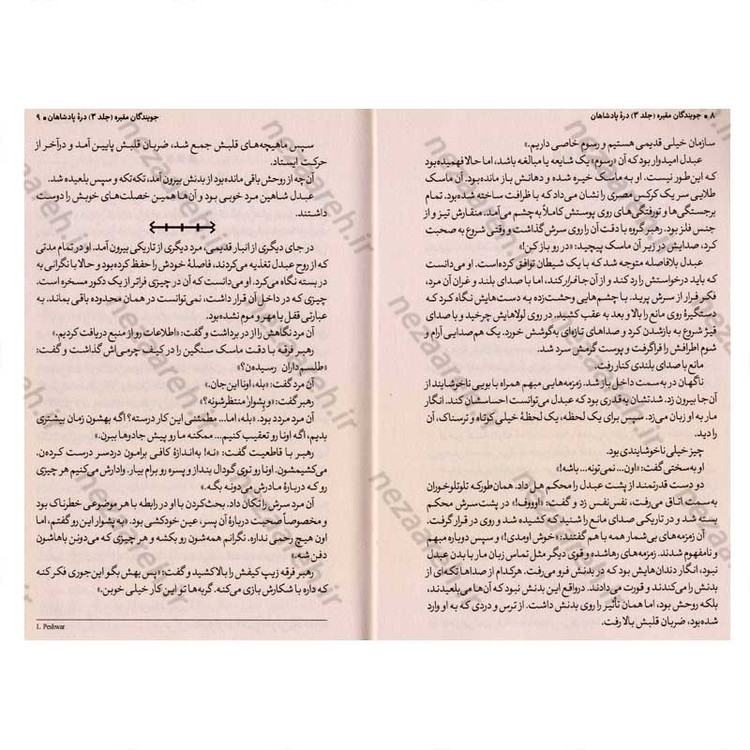 ۸ ▪ جویندگان مقبره (جلد ۳) درۀ پادشاهان
سازمان خیلی قدیمی هستیم و رسوم خاصی داریم.»
عبدل امیدوار بود که آن «رسوم» یک شایعه یا مبالغه باشد، اما حالا فهمیده بود
که این‌طور نیست. او به ماسک خیره شده و دهانش باز مانده‌بود. آن ماسک
طلایی سر یک کرکس مصری را نشان می‌داد که با ظرافت ساخته شده‌بود. تمام
برجستگی‌ها و تورفتگی‌های روی پوستش کاملاً به‌چشم می‌آمد. منقارش تیز و از
جنس فلز بود. رهبر گروه با دقت آن را روی سرش گذاشت و وقتی شروع به صحبت
کرد، صدایش در زیر آن ماسک پیچید: «در رو باز کن!»
عبدل بلافاصله متوجه شد که با یک شیطان توافق کرده‌است. او می‌دانست
که باید درخواستش را رد کند و از آن جا فرار کند، اما با صدای بلند و غران آن مرد،
فکر فرار از سرش پرید. با چشم‌هایی وحشت‌زده به دست‌هایش نگاه کرد که
دستگیرۀ روی مانع را بالا و بعد به عقب کشید. در روی لولاهایش چرخید و با صدای
قیژ شروع به بازشدن کرد و صداهای تازه‌ای به‌گوشش خورد. یک هم‌صدایی آرام و
شوم اطرافش را فراگرفت و پوست گرمش سرد شد.
مانع با صدای بلندی کنار رفت.
ناگهان در به‌سمت داخل باز شد. زمزمه‌هایی مبهم همراه با بویی ناخوشایند از
آن‌جا بیرون زد. شدتشان به‌قدری بود که عبدل می‌توانست احساسشان کند. انگار
مار به او زبان می‌زد. سپس برای یک لحظه، یک لحظۀ خیلی کوتاه و ترسناک، آن
را دید.
چیز خیلی ناخوشایندی بود.
او به‌سختی گفت: «اون... نمی‌تونه... باشه!»
دو دست قدرتمند از پشت عبدل را محکم هل داد. همان‌طور که تلوتلوخوران
به‌سمت اتاق می‌رفت، نفس‌نفس زد و گفت: «اوووف!» در پشت‌سرش محکم
بسته شد و در تاریکی صدای مانع را شنید که کشیده شد و روی در قرار گرفت.
آن زمزمه‌های بی‌شمار همه با هم گفتند: «خوش اومدی!» و سپس دوباره مبهم
و نامفهوم شدند. زمزمه‌های رهاشده و قوی دیگر مثل تماس زبان مار با بدن عبدل
نبود، انگار دندان‌هایش بود که در بدنش فرو می‌رفت. هرکدام از صداها تکه‌ای از
بدنش را می‌کندند و قورت می‌دادند. درواقع این بدنش نبود که آن‌ها می‌بلعیدند،
بلکه روحش بود، اما همان تأثیر را روی بدنش داشت. از ترس و دردی که به او وارد
شده‌بود، ضربان قلبش بالا رفت.
جویندگان مقبره (جلد ۳) درۀ پادشاهان ▪ ۹
سپس ماهیچه‌های قلبش جمع شد، ضربان قلبش پایین آمد و درآخر از
حرکت ایستاد.
آن چه از روحش باقی مانده‌بود از بدنش بیرون آمد، تکه‌تکه و سپس بلعیده شد.
عبدل شاهین مرد خوبی بود و آن‌ها همین خصلت‌های خوبش را دوست
داشتند.
در جای دیگری از انبار قدیمی، مرد دیگری از تاریکی بیرون آمد. او در تمام مدتی
که از روح عبدل تغذیه می‌کردند، فاصلۀ خودش را حفظ کرده‌بود و حالا با نگرانی به
در بسته نگاه می‌کرد. او می‌دانست که آن در چیزی فراتر از یک دکور مسخره است.
چیزی که در داخل آن قرار داشت، نمی‌توانست در همان محدوده باقی بماند. به
عبارتی قفل یا مهر و موم نشده‌بود.
آن مرد نگاهش را از در برداشت و گفت: «اطلاعات رو از منبع دریافت کردیم.»
رهبر فرقه با دقت ماسک سنگین را در کیف چرمی‌اش گذاشت و گفت:
«طلسم‌داران رسیده‌ن؟»
آن مرد گفت: «بله، اونا این‌جان.»
رهبر گفت: «و پشوار منتظرشونه؟»
آن مرد مردد بود. «بله، اما... مطمئنی این کار درسته؟ اگه بهشون زمان بیشتری
بدیم، اگه اونا رو تعقیب کنیم... ممکنه ما رو پیش جادوها ببرن.»
رهبر با قاطعیت گفت: «نه! به‌اندازۀ کافی برامون دردسر درست کردن.
می‌کشیمشون. اونا رو توی گودال بنداز و پسره رو برام بیار. وادارش می‌کنیم هر چیزی
رو که دربارۀ مادرش می‌دونه بگه.»
آن مرد سرش را تکان داد. بحث‌کردن با او در رابطه با هر موضوعی خطرناک بود
و مخصوصاً صحبت دربارۀ آن پسر، عین خودکشی بود. «به پشوار این رو گفتم، اما
اون هیچ رحمی نداره. نگرانم همه‌شون رو بکشه و هر چیزی که می‌دونن باهاشون
دفن شه.»
رهبر فرقه زیپ کیفش را بالا کشید و گفت: «پس بهش بگو این‌جوری فکر کنه
که داره با شکارش بازی می‌کنه. گربه‌ها تو این کار خیلی خوبن.»
1. Peshwar
nezaareh.ir